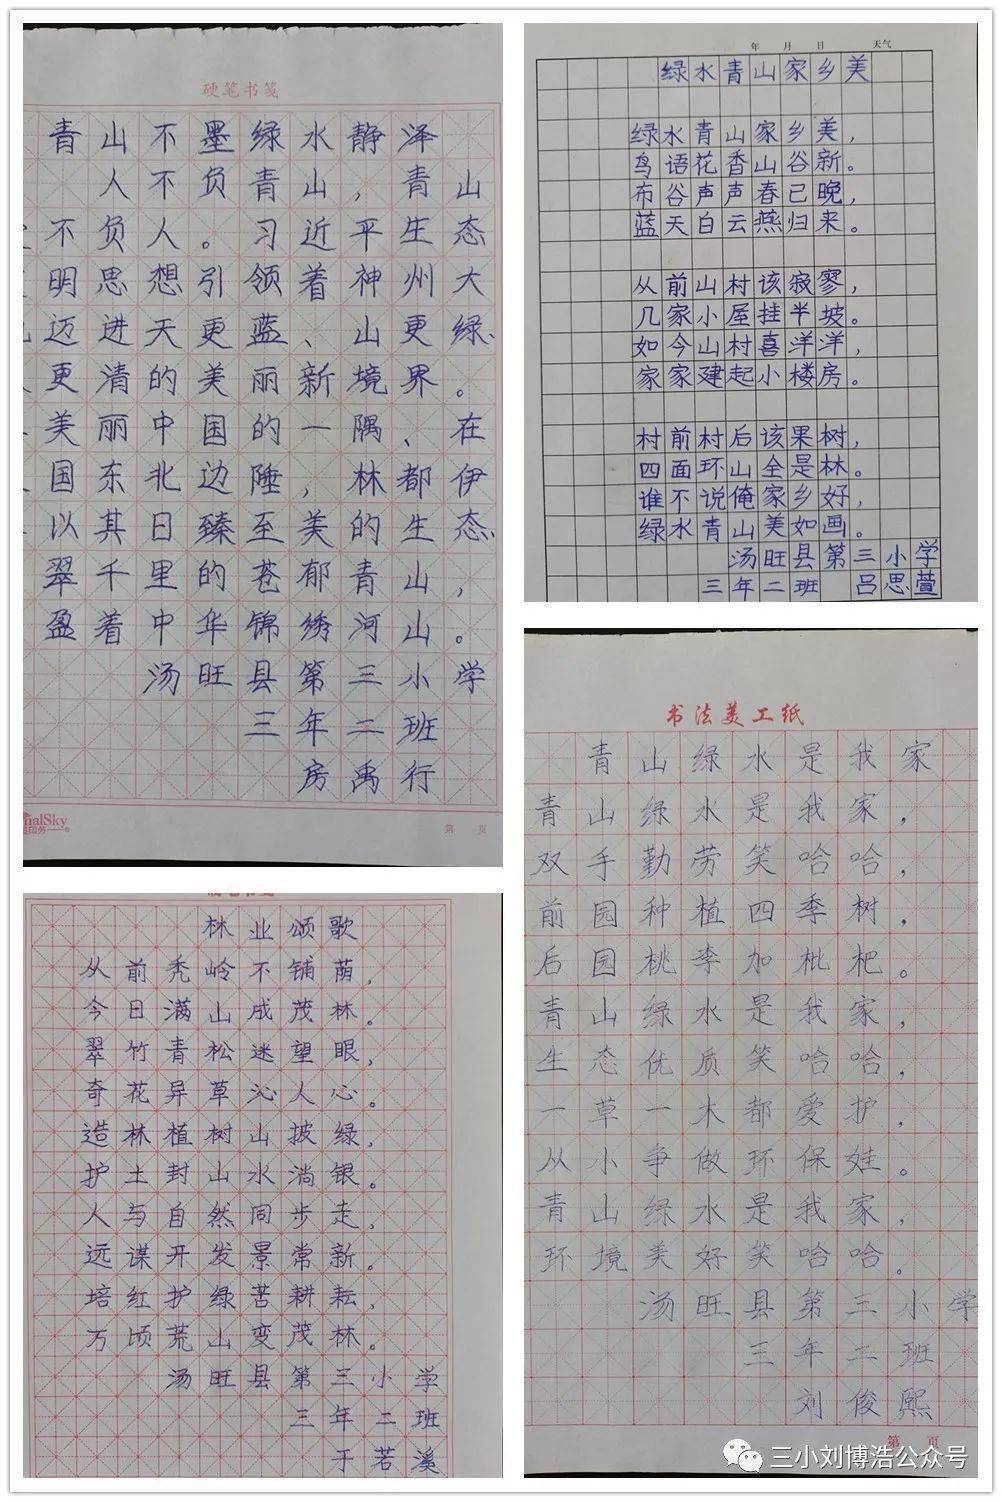 硬笔书笺
青山不墨绿水静泽
人不负青山，青山
不负人。习近平生态
明思想引领着神州大
迈进天更蓝、山更绿、
更清的美丽新境界。
美丽中国的一隅、在
国东北边陲，林都伊
以其日臻至美的生态
翠千里的苍郁青山，
盈着中华锦绣河山。
汤旺县第三小学
三年二班
房禹行
第 页
年 月 日 天气
绿水青山家乡美
绿水青山家乡美，
鸟语花香山谷新。
布谷声声春已晚，
蓝天白云燕归来。
从前山村该寂寥，
几家小屋挂半坡。
如今山村喜洋洋，
家家建起小楼房。
村前村后该果树，
四面环山全是林。
谁不说俺家乡好，
绿水青山美如画。
汤旺县第三小学
三年二班 吕思萱
硬笔书笺
林业颂歌
从前秃岭不铺荫，
今日满山成茂林。
翠竹青松迷望眼，
奇花异草沁人心。
造林植树山披绿，
护土封山水淌银。
人与自然同步走，
远谋开发景常新。
培红护绿苦耕耘，
万顷荒山变茂林。
汤旺县第三小学
三年二班
于若溪
书法美工纸
青山绿水是我家
青山绿水是我家，
双手勤劳笑哈哈，
前园种植四季树，
后园桃李加枇杷。
青山绿水是我家，
生态优质笑哈哈，
一草一木都爱护，
从小争做环保娃。
青山绿水是我家，
环境美好笑哈哈。
汤旺县第三小学
三年二班
刘俊熙
第 页
三小刘博浩公众号